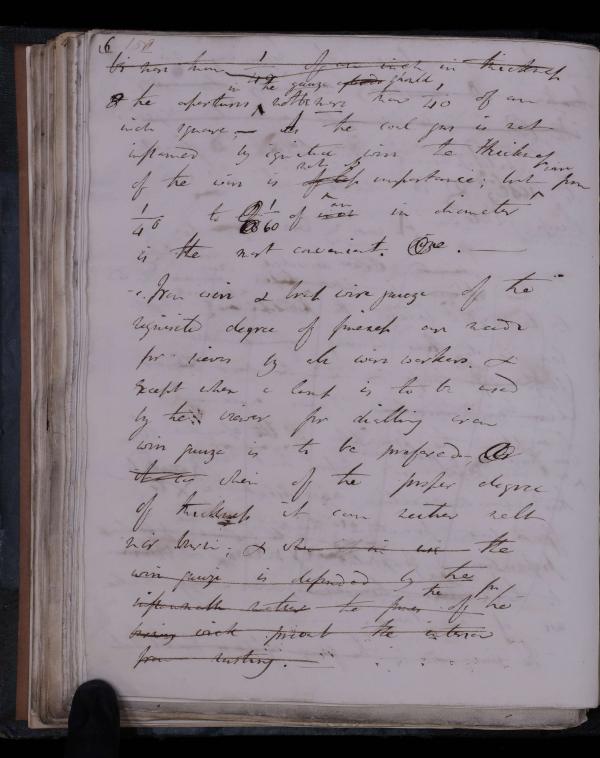 6 158
be more than 1/40 of an inch in thickness
in the gauze should
& the apertures not be more than 1/40 of an
inch square, – As the coal gas is not
inflamed by ignited wire the thickness
of the wire is not of importance; but from
1/40 to 1/60 of an in diameter
is the most convenient. –
Iron wire & brass wire gauze of the
requisite degree of fineness are made
for sieves by all wire workers. &
Except when a lamp is to be used
by the viewer for dialling iron
wire gauze is to be preferred
when of the proper degree
of thickness it can neither melt
nor burn; & the
wire gauze is defended by the
the
to the power of the
wick prevent the interior
from rusting.